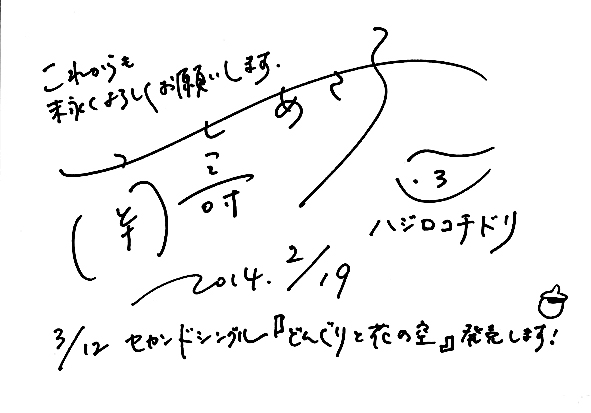 これからも
末永くよろしくお願いします.
ハジロコチドリ
2014. 2/19
3/12 セカンドシングル『どんぐりと花の空』発売します!